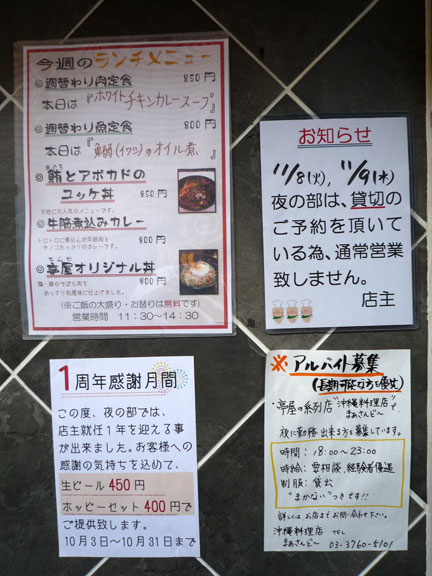 今週のランチメニュー
◎週替わり肉定食 850円
本日は『ホワイトチキンカレースープ』
◎週替わり魚定食 800円
本日は『鰯(イワシ)のオイル煮』
◎鮪とアボカドの
ユッケ丼 850円
女性に大人気のメニューです。
◎牛筋煮込みカレー
トロトロに煮込んだ牛筋肉と
キノコたっぷりのカレーです。 800円
◎亭屋オリジナル丼
鶏・豚のそぼろを
あっさり和風味に仕上げました。 800円
(※ご飯の大盛り・お替りは無料です)
営業時間 11:30~14:30
お知らせ
11/8(火), 11/9(水)
夜の部は、貸切の
ご予約を頂いて
いる為、通常営業
致しません。
店主
1周年感謝月間
この度、夜の部では、
店主就任1年を迎える事
が出来ました。お客様への
感謝の気持ちを込めて、
生ビール 450円
ホッピーセット 400円で
ご提供致します。
10月3日~10月31日まで
※アルバイト募集
(長期可能な方を優先)
亭屋の系列店"沖縄料理店
まぁさんど~"で
夜に勤務出来る方を募集しています。
時間:18:00~23:00
時給:要相談、経験者優遇
制服:貸出
"まかない"つきです!!
詳しくはお店までお問い合わせ下さい。
沖縄料理店 TEL
まぁさんど~ 03-3760-5101